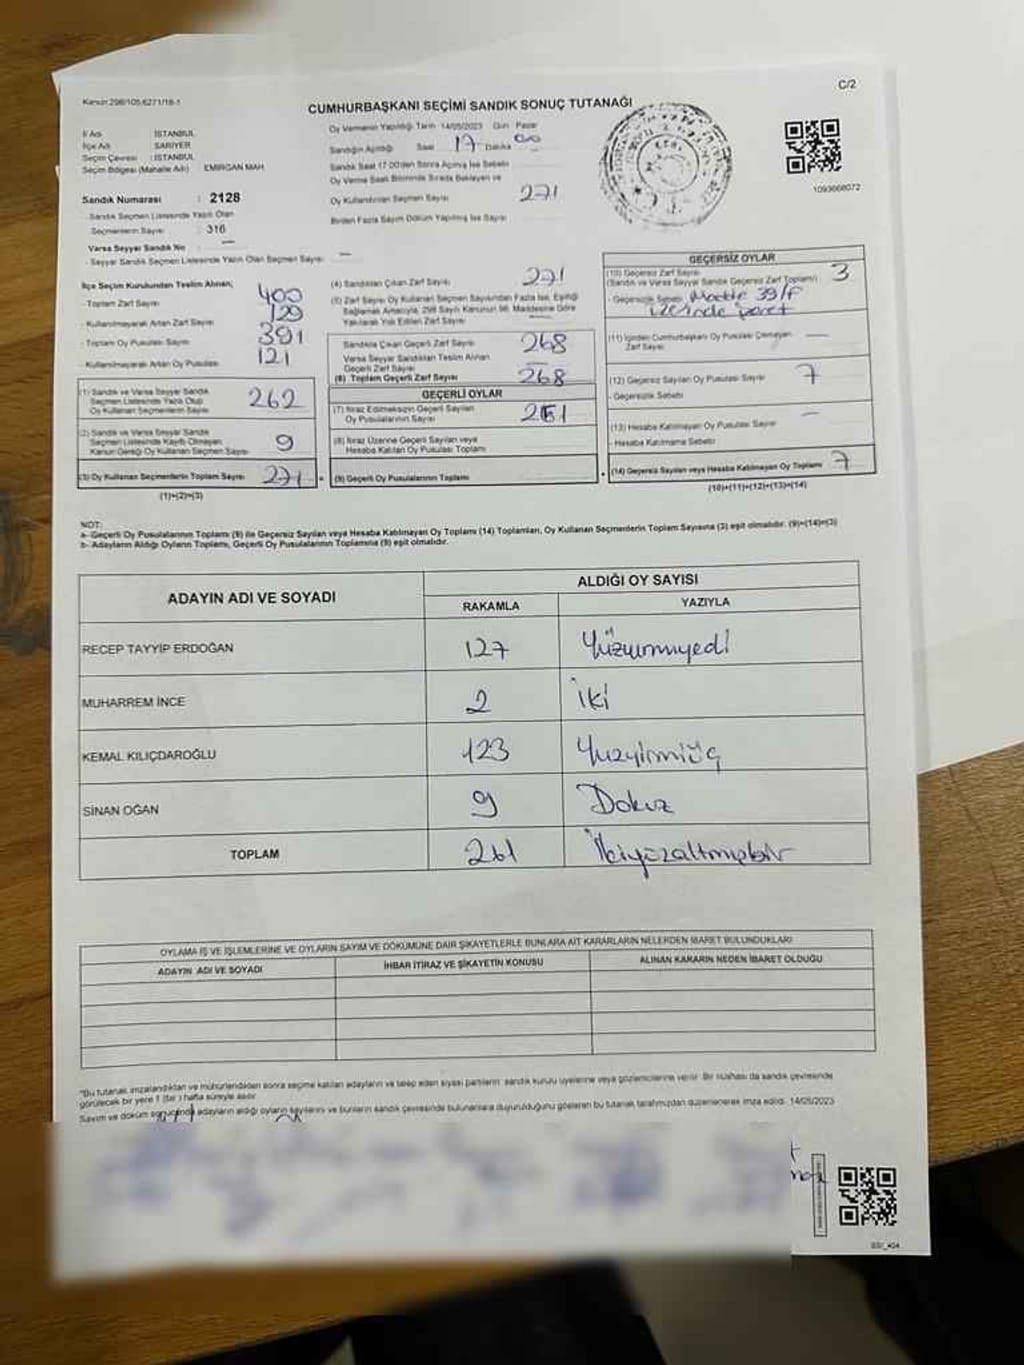 Kanun:298/105,6271/18-1
C/2
CUMHURBAŞKANI SEÇİMİ SANDIK SONUÇ TUTANAĞI
İl Adı İSTANBUL
İlçe Adı SARIYER
Seçim Çevresi : İSTANBUL
Seçim Bölgesi (Mahalle Adı) EMİRGAN MAH
Sandık Numarası : 2128
- Sandık Seçmen Listesinde Yazılı Olan
Seçmenlerin Sayısı : 316
Varsa Seyyar Sandık No —
- Seyyar Sandık Seçmen Listesinde Yazılı Olan Seçmen Sayısı —
Oy Vermenin Yapıldığı Tarih 14/05/2023 Gün Pazar
Sandığın Açıldığı Saat 17 Dakika 00
Sandık Saat 17:00'den Sonra Açılmış İse Sebebi
Oy Verme Saati Bitiminde Sırada Bekleyen ve
Oy Kullandırılan Seçmen Sayısı 271
Birden Fazla Sayım Döküm Yapılmış İse Sayısı
1093668072
İlçe Seçim Kurulundan Teslim Alınan;
- Toplam Zarf Sayısı 400
- Kullanılmayarak Artan Zarf Sayısı 129
- Toplam Oy Pusulası Sayısı 391
- Kullanılmayarak Artan Oy Pusulası 121
(1) Sandık ve Varsa Seyyar Sandık
Seçmen Listesinde Yazılı Olup
Oy Kullanan Seçmenlerin Sayısı 262
(2) Sandık ve Varsa Seyyar Sandık
Seçmen Listesinde Kayıtlı Olmayan
Kanun Gereği Oy Kullanan Seçmen Sayısı 9
(3) Oy Kullanan Seçmenlerin Toplam Sayısı 271 =
(1)+(2)=(3)
(4) Sandıktan Çıkan Zarf Sayısı 271
(5) Zarf Sayısı Oy Kullanan Seçmen Sayısından Fazla İse, Eşitliği
Sağlamak Amacıyla, 298 Sayılı Kanunun 98. Maddesine Göre
Yakılarak Yok Edilen Zarf Sayısı —
Sandıkta Çıkan Geçerli Zarf Sayısı 268
Varsa Seyyar Sandıktan Teslim Alınan
Geçerli Zarf Sayısı —
(6) Toplam Geçerli Zarf Sayısı 268
GEÇERLİ OYLAR
(7) İtiraz Edilmeksizin Geçerli Sayılan
Oy Pusulalarının Sayısı 261
(8) İtiraz Üzerine Geçerli Sayılan veya
Hesaba Katılan Oy Pusulası Toplamı
(9) Geçerli Oy Pusulalarının Toplamı +
GEÇERSİZ OYLAR
(10) Geçersiz Zarf Sayısı 3
(Sandık ve Varsa Seyyar Sandık Geçersiz Zarf Toplamı)
- Geçersizlik Sebebi Madde 39/f
üzerinde işaret
(11) İçinden Cumhurbaşkanı Oy Pusulası Çıkmayan
Zarf Sayısı —
(12) Geçersiz Sayılan Oy Pusulası Sayısı 7
- Geçersizlik Sebebi
(13) Hesaba Katılmayan Oy Pusula Sayısı —
- Hesaba Katılmama Sebebi
(14) Geçersiz Sayılan veya Hesaba Katılmayan Oy Toplamı 7
(10)+(11)+(12)+(13)=(14)
NOT:
a- Geçerli Oy Pusulalarının Toplamı (9) ile Geçersiz Sayılan veya Hesaba Katılmayan Oy Toplamı (14) Toplamları, Oy Kullanan Seçmenlerin Toplam Sayısına (3) eşit olmalıdır. (9)+(14)=(3)
b- Adayların Aldığı Oyların Toplamı, Geçerli Oy Pusulalarının Toplamına (9) eşit olmalıdır.
ADAYIN ADI VE SOYADI ALDIĞI OY SAYISI
RAKAMLA YAZIYLA
RECEP TAYYİP ERDOĞAN 127 Yüzyirmiyedi
MUHARREM İNCE 2 İki
KEMAL KILIÇDAROĞLU 123 Yüzyirmiüç
SİNAN OĞAN 9 Dokuz
TOPLAM 261 İkiyüzaltmışbir
OYLAMA İŞ VE İŞLEMLERİNE VE OYLARIN SAYIM VE DÖKÜMÜNE DAİR ŞİKAYETLERLE BUNLARA AİT KARARLARIN NELERDEN İBARET BULUNDUKLARI
ADAYIN ADI VE SOYADI İHBAR İTİRAZ VE ŞİKAYETİN KONUSU ALINAN KARARIN NEDEN İBARET OLDUĞU
"Bu tutanak imzalandıktan ve mühürlendikten sonra seçime katılan adayların ve talep eden siyasi partilerin sandık kurulu üyelerine veya gözlemcilerine verilir. Bir nüshası da sandık çevresinde
görülecek bir yere 1 (bir) hafta süreyle asılır.
Sayım ve döküm sonucunda adayların aldığı oyların sayılarını ve bunların sandık çevresinde bulunanlara duyurulduğunu gösteren bu tutanak tarafımızdan düzenlenerek imza edildi. 14/05/2023